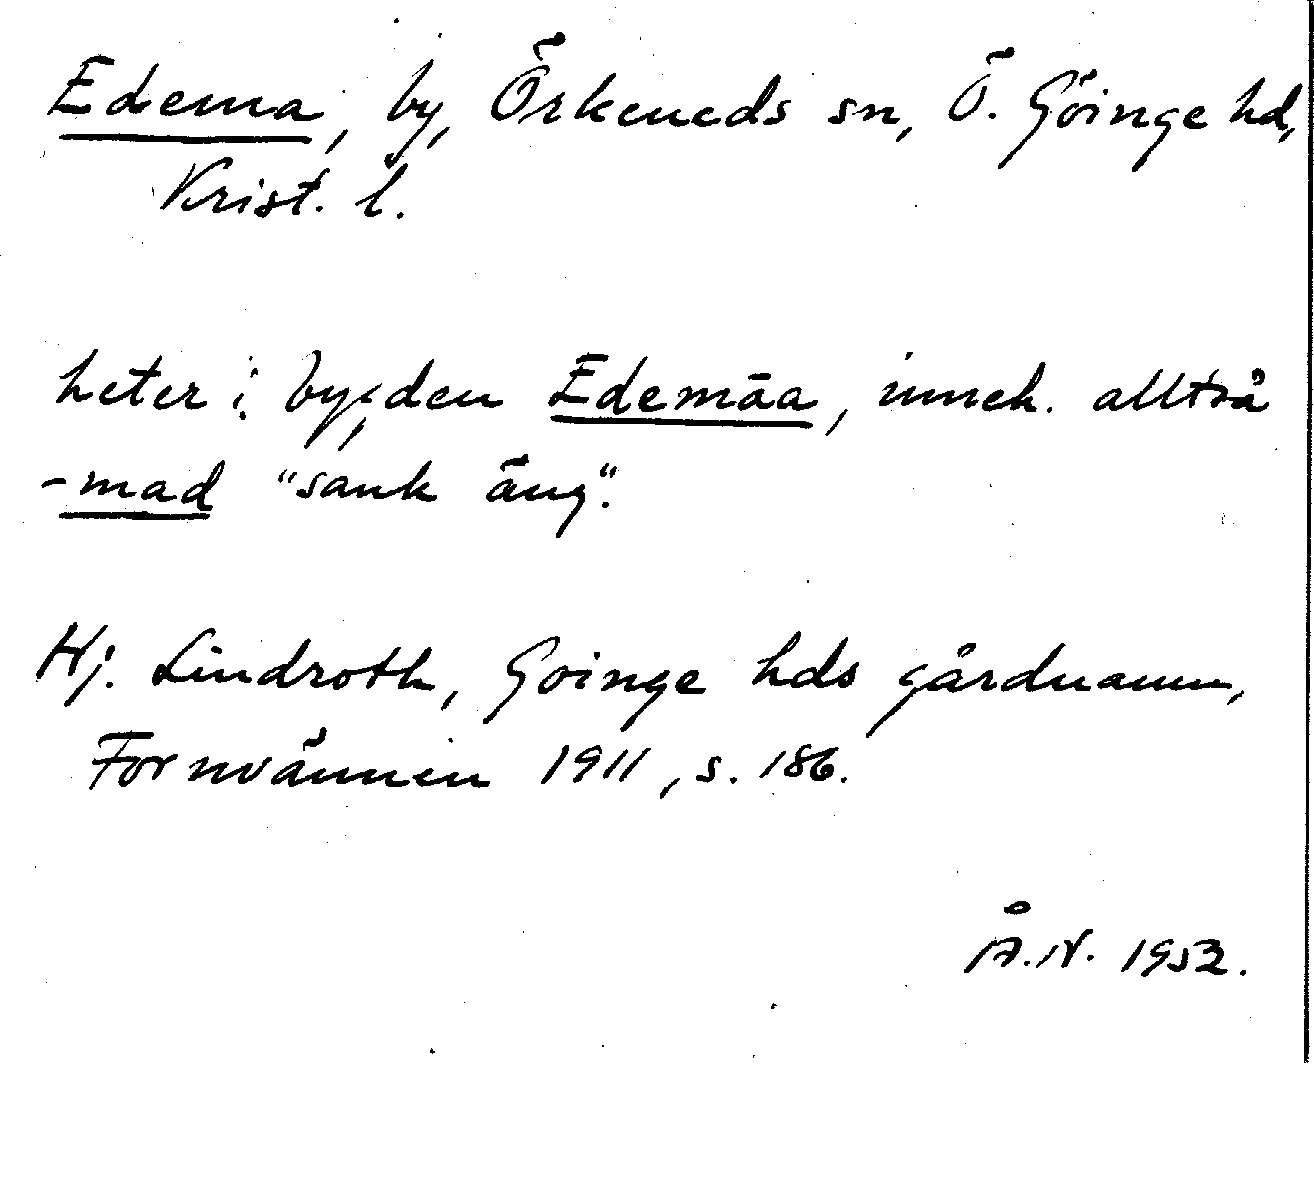 Edema, by, Örkeneds sn, Ö. Göinge hd,
Krist. l.
heter i bygden Edemāa, inneh. alltså
-mad "sank äng".
Hj. Lindroth, Göinge hds gårdnamn,
Fornvännen 1911, s. 186.
Å.N. 1952.